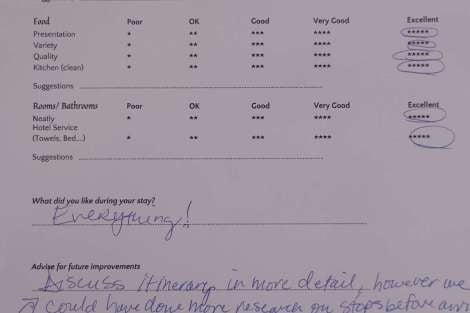 Food Poor OK Good Very Good Excellent
Presentation * ** *** **** *****
Variety * ** *** **** *****
Quality * ** *** **** *****
Kitchen (clean) * ** *** **** *****
Suggestions
Rooms/ Bathrooms Poor OK Good Very Good Excellent
Neatly * ** *** **** *****
Hotel Service
(Towels, Bed...) * ** *** **** *****
Suggestions
What did you like during your stay?
Everything!
Advise for future improvements
Discuss itinerary in more detail, however we
could have done more research on stops before